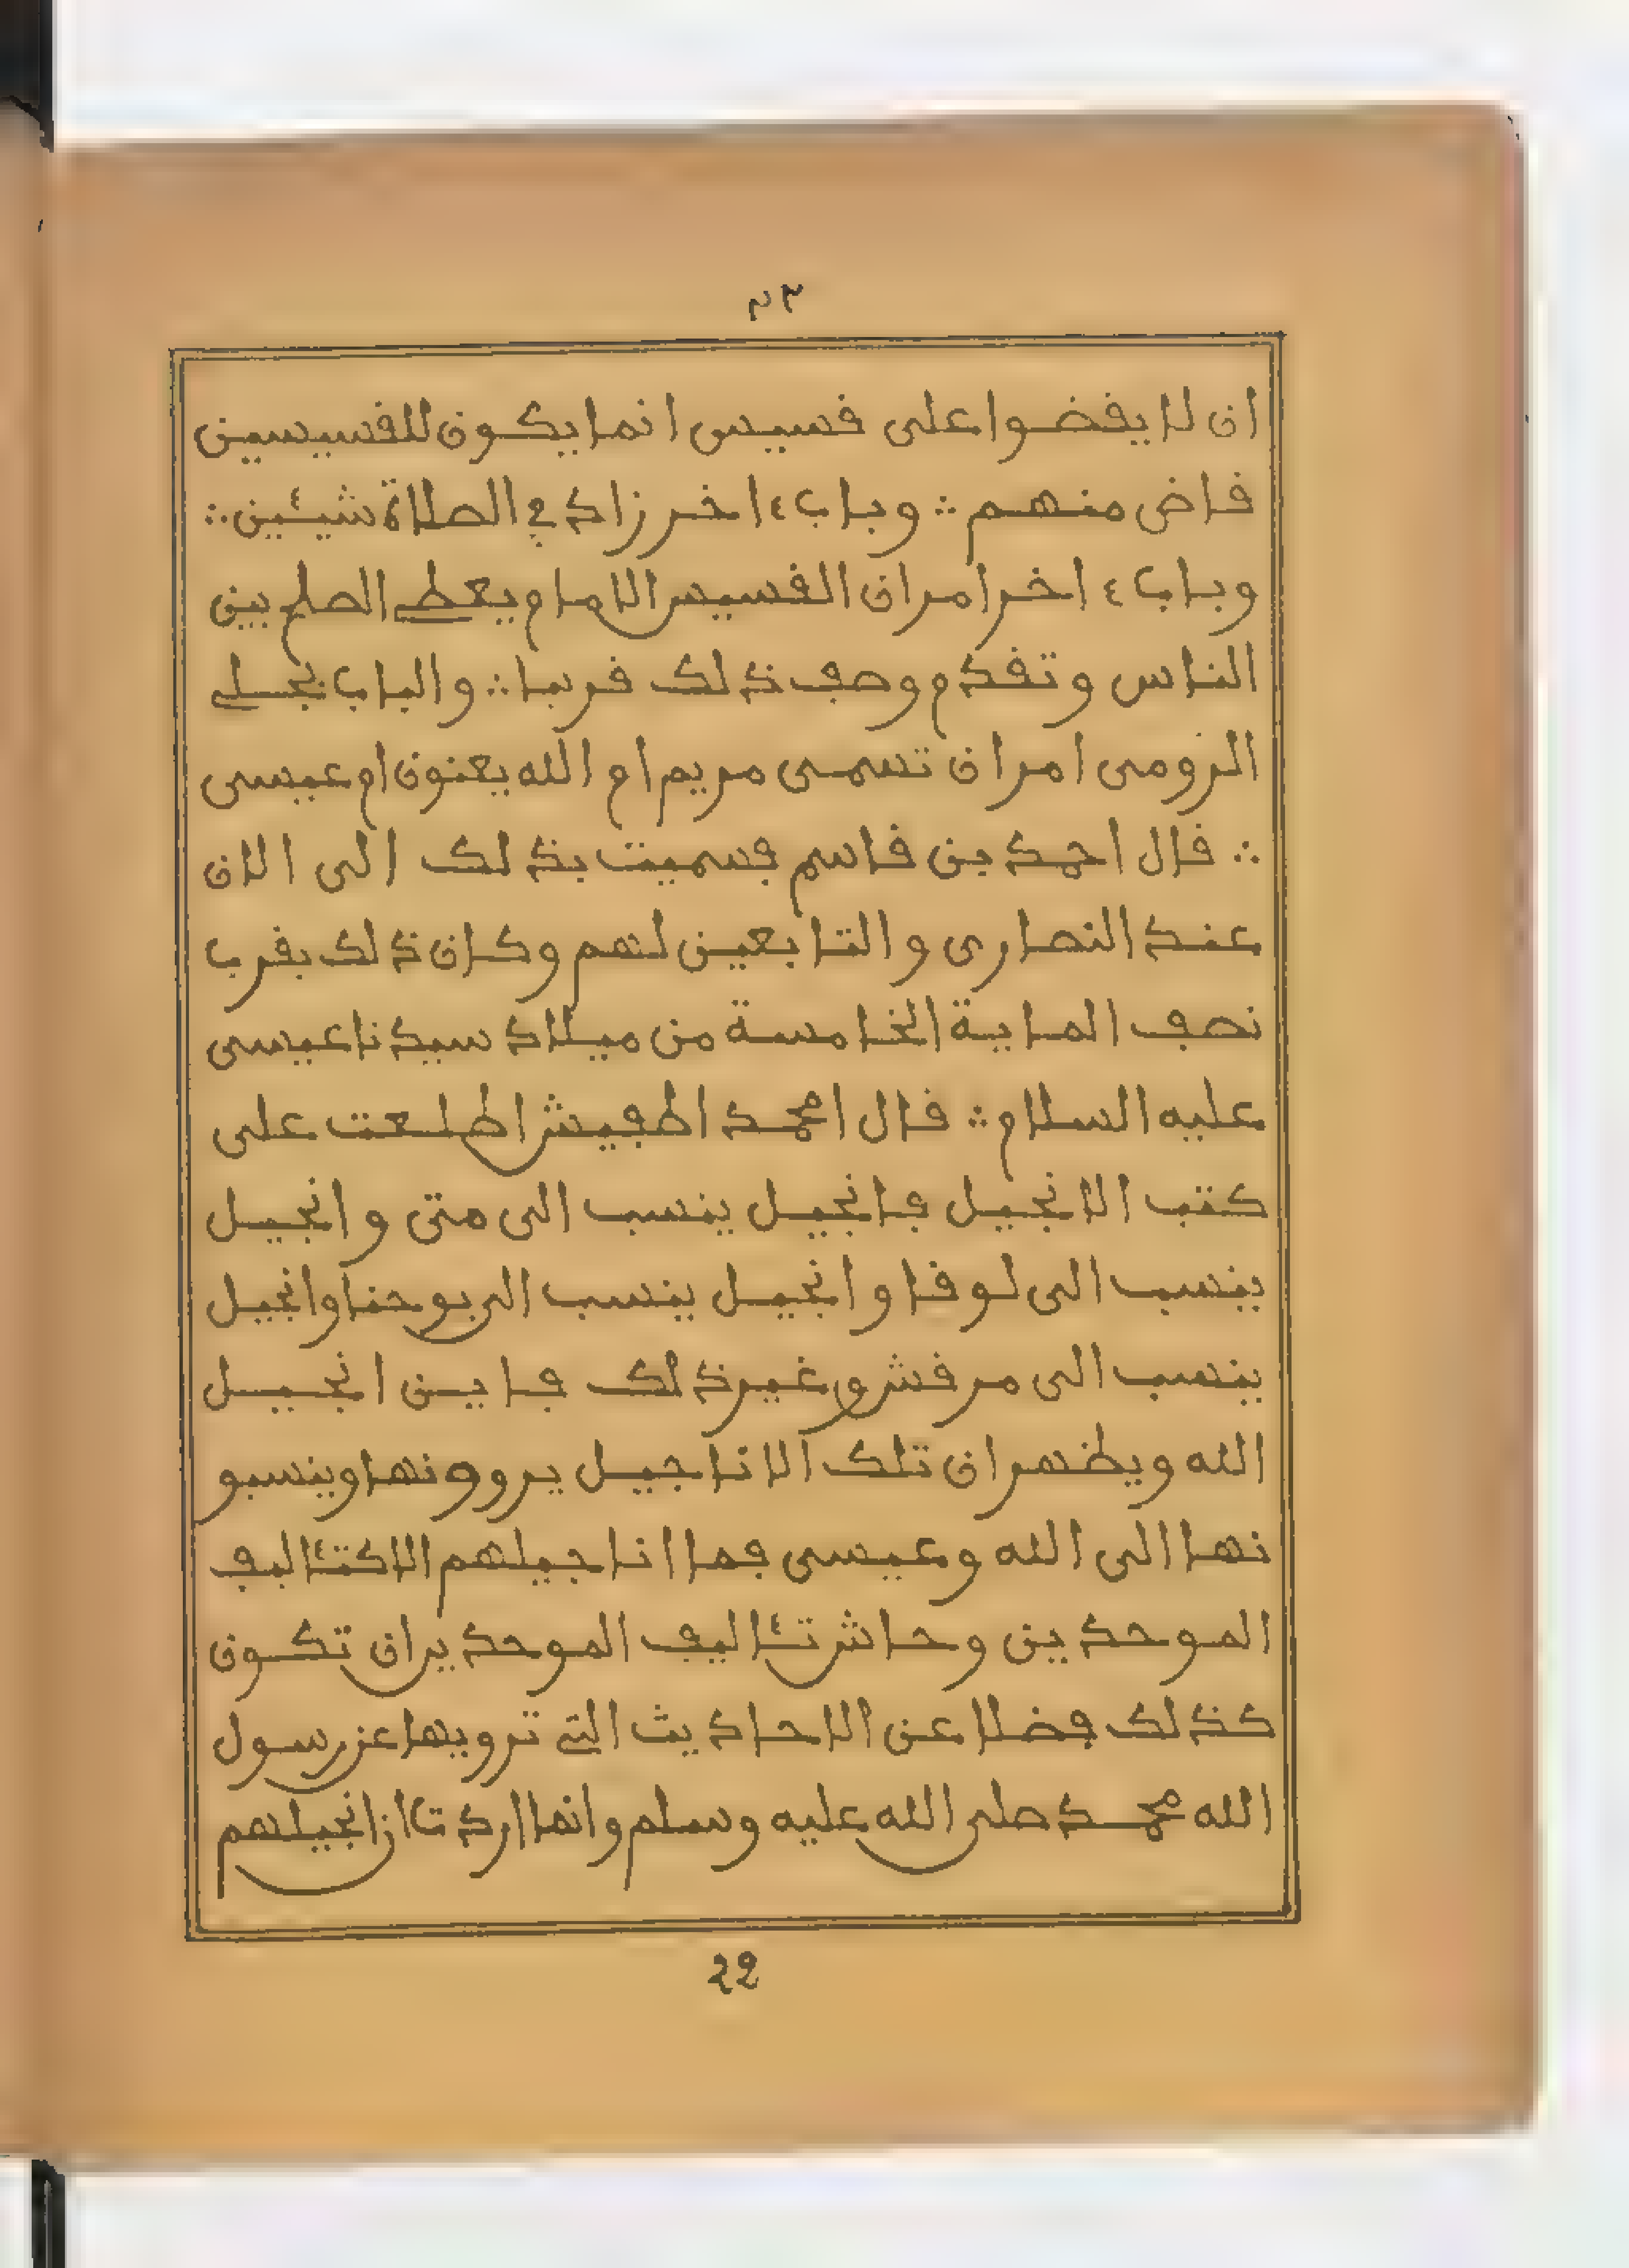 ٢٣
ان لا يقضوا على قسيس انما يكون للقسيسين
قاض منهم ∴ وباب ءاخر زاد في الصلاة شيئين ∴
وباب ءاخر امر ان القسيس الامام يعطي الصلح بين
الناس وتقدم وصف ذلك قريبا ∴ والباب نجلي
الرومى امر ان تسمى مريم ام الله يعنون ام عيسى
∴ قال احمد بن قاسم فسميت بذلك الى الان
عند النصارى والتابعين لهم وكان ذلك بقرب
نصف الماية الخامسة من ميلاد سيدنا عيسى
عليه السلام ∴ قال امحمد اطفيش اطلعت على
كتب الانجيل فانجيل ينسب الى متى وانجيل
ينسب الى لوقا وانجيل ينسب الى يوحنا وانجيل
ينسب الى مرقش وغير ذلك فاين انجيل
الله ويظهر ان تلك الاناجيل يروونها وينسبو
نها الى الله وعيسى فما اناجيلهم الا كتئاليف
الموحدين وحاش تئاليف الموحدين ان تكون
كذلك فضلا عن الاحاديث التي ترويها عن رسول
الله محمد صلى الله عليه وسلم وانما اردت ان انجيلهم
22